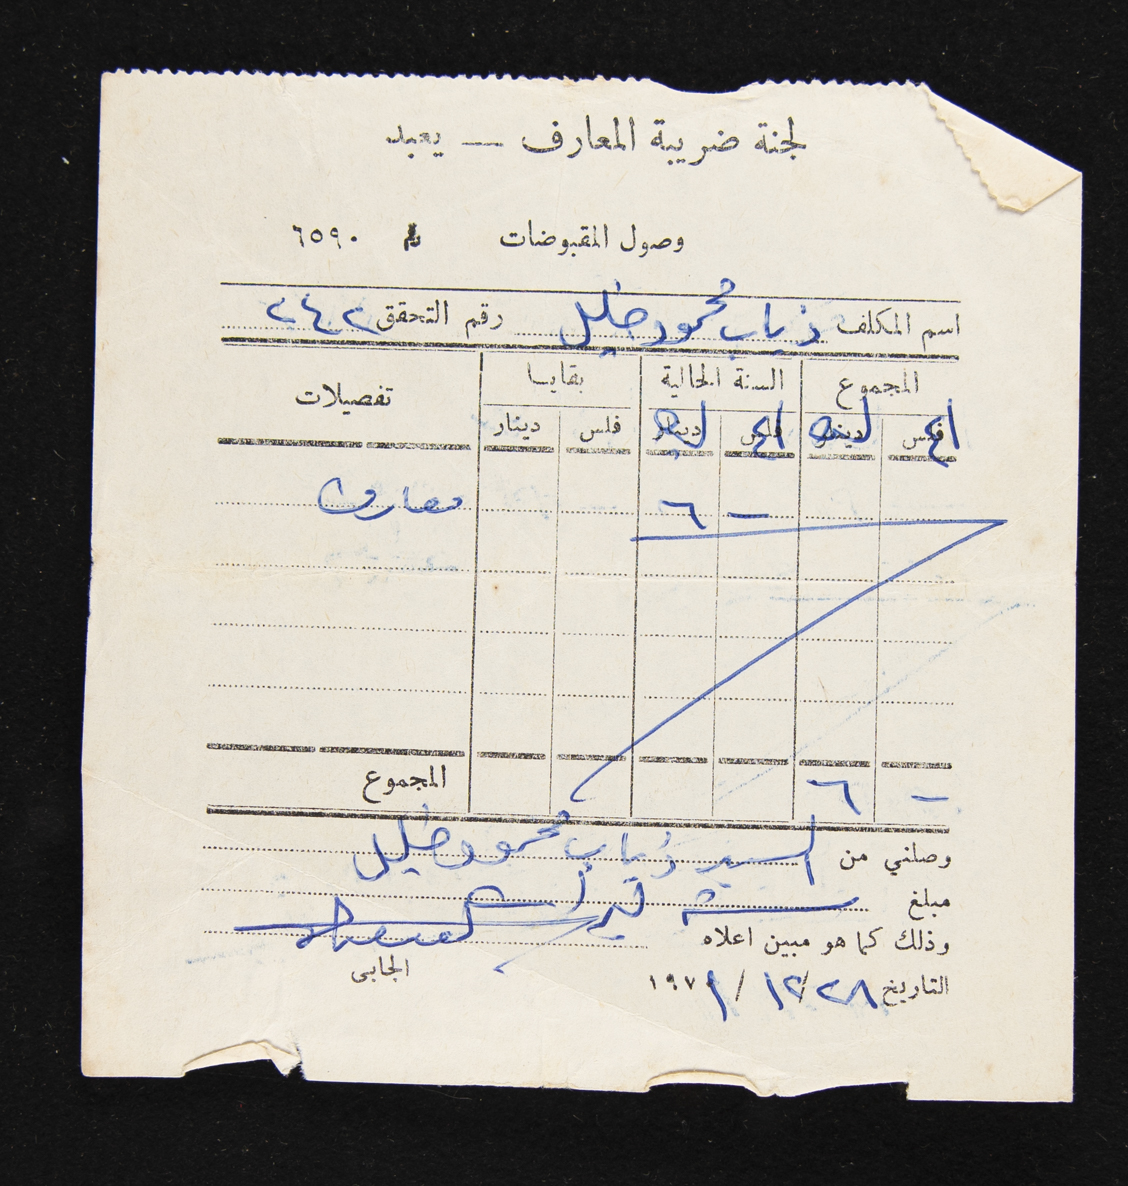 لجنة ضريبة المعارف — يعبد
وصول المقبوضات رقم ٦٥٩٠
اسم المكلف ذياب محمود خليل رقم التحقق ٢٤٢
المجموع السنة الحالية بقايا تفصيلات
فلس دينار فلس دينار فلس دينار
اغ ل اغ ل
- ٦ معارف
- ٦ المجموع
وصلني من السيد ذياب محمود خليل
مبلغ ستة
وذلك كما هو مبين اعلاه
الجابي
التاريخ ٢٨/ ١٢/ ١٩٧١